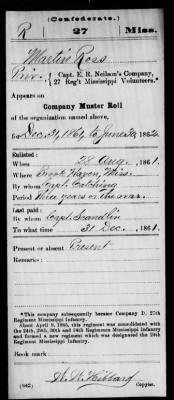 (Confederate.)
R 27 Miss.
Martin Ross
Priv., Capt. E. R. Neilson's Company,
27 Reg't Mississippi Volunteers.*
Appears on
Company Muster Roll
of the organization named above,
for Dec. 31, 1861, to June 30, 1862.
Enlisted:
When 28 Aug., 1861.
Where Brook Haven, Miss.
By whom Capt. Catching
Period Three years or the war.
Last paid:
By whom Capt. Scandlin
To what time 31 Dec., 1861.
Present or absent Present
Remarks:
*This company subsequently became Company D, 27th
Regiment Mississippi Infantry.
About April 9, 1865, this regiment was consolidated with
the 24th, 29th, 30th and 34th Regiments Mississippi Infantry
and formed a new regiment which was designated the 24th
Regiment Mississippi Infantry.
Book mark:
(642) W. W. Hibbard
Copyist.